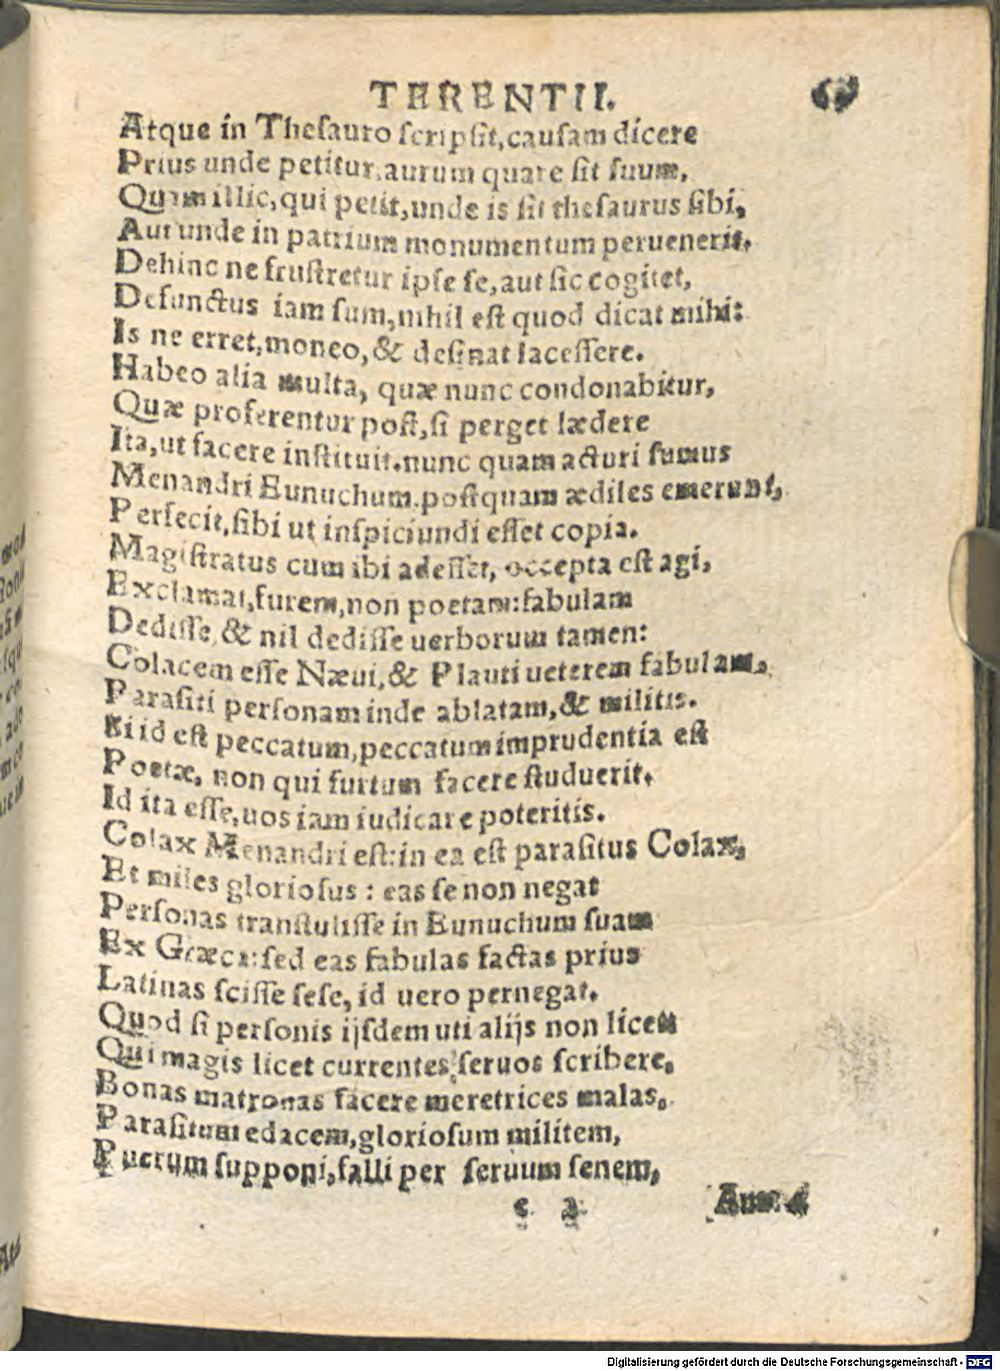 TERENTII. 67
Atque in Theſauro ſcripſit, cauſam dicere
Prius unde petitur, aurum quare ſit ſuum,
Quam illic, qui petit, unde is ſit theſaurus ſibi,
Aut unde in patrium monumentum peruenerit.
Dehinc ne fruſtretur ipſe ſe, aut ſic cogitet,
Defunctus iam ſum, nihil eſt quod dicat mihi:
Is ne erret, moneo, & deſinat laceſſere.
Habeo alia multa, quæ nunc condonabitur,
Quæ proferentur poſt, ſi perget lædere
Ita, ut facere inſtituit. nunc quam acturi ſumus
Menandri Eunuchum. poſtquam ædiles emerunt,
Perfecit, ſibi ut inſpiciundi eſſet copia.
Magiſtratus cum ibi adeſſet, occepta eſt agi,
Exclamat, furem, non poetam: fabulam
Dediſſe, & nil dediſſe uerborum tamen:
Colacem eſſe Næui, & Plauti ueterem fabulam,
Paraſiti perſonam inde ablatam, & militis.
Si id eſt peccatum, peccatum imprudentia eſt
Poetæ, non qui furtum facere ſtuduerit.
Id ita eſſe, uos iam iudicare poteritis.
Colax Menandri eſt: in ea eſt paraſitus Colax,
Et miles glorioſus : eas ſe non negat
Perſonas tranſtuliſſe in Eunuchum ſuam
Ex Græca: ſed eas fabulas factas prius
Latinas ſciſſe ſeſe, id uero pernegat.
Quod ſi perſonis ijſdem uti alijs non licet:
Qui magis licet currentes ſeruos ſcribere,
Bonas matronas facere meretrices malas,
Paraſitum edacem, glorioſum militem,
Puerum ſupponi, falli per ſeruum ſenem,
Digitalisierung gefördert durch die Deutsche Forschungsgemeinschaft - DFG